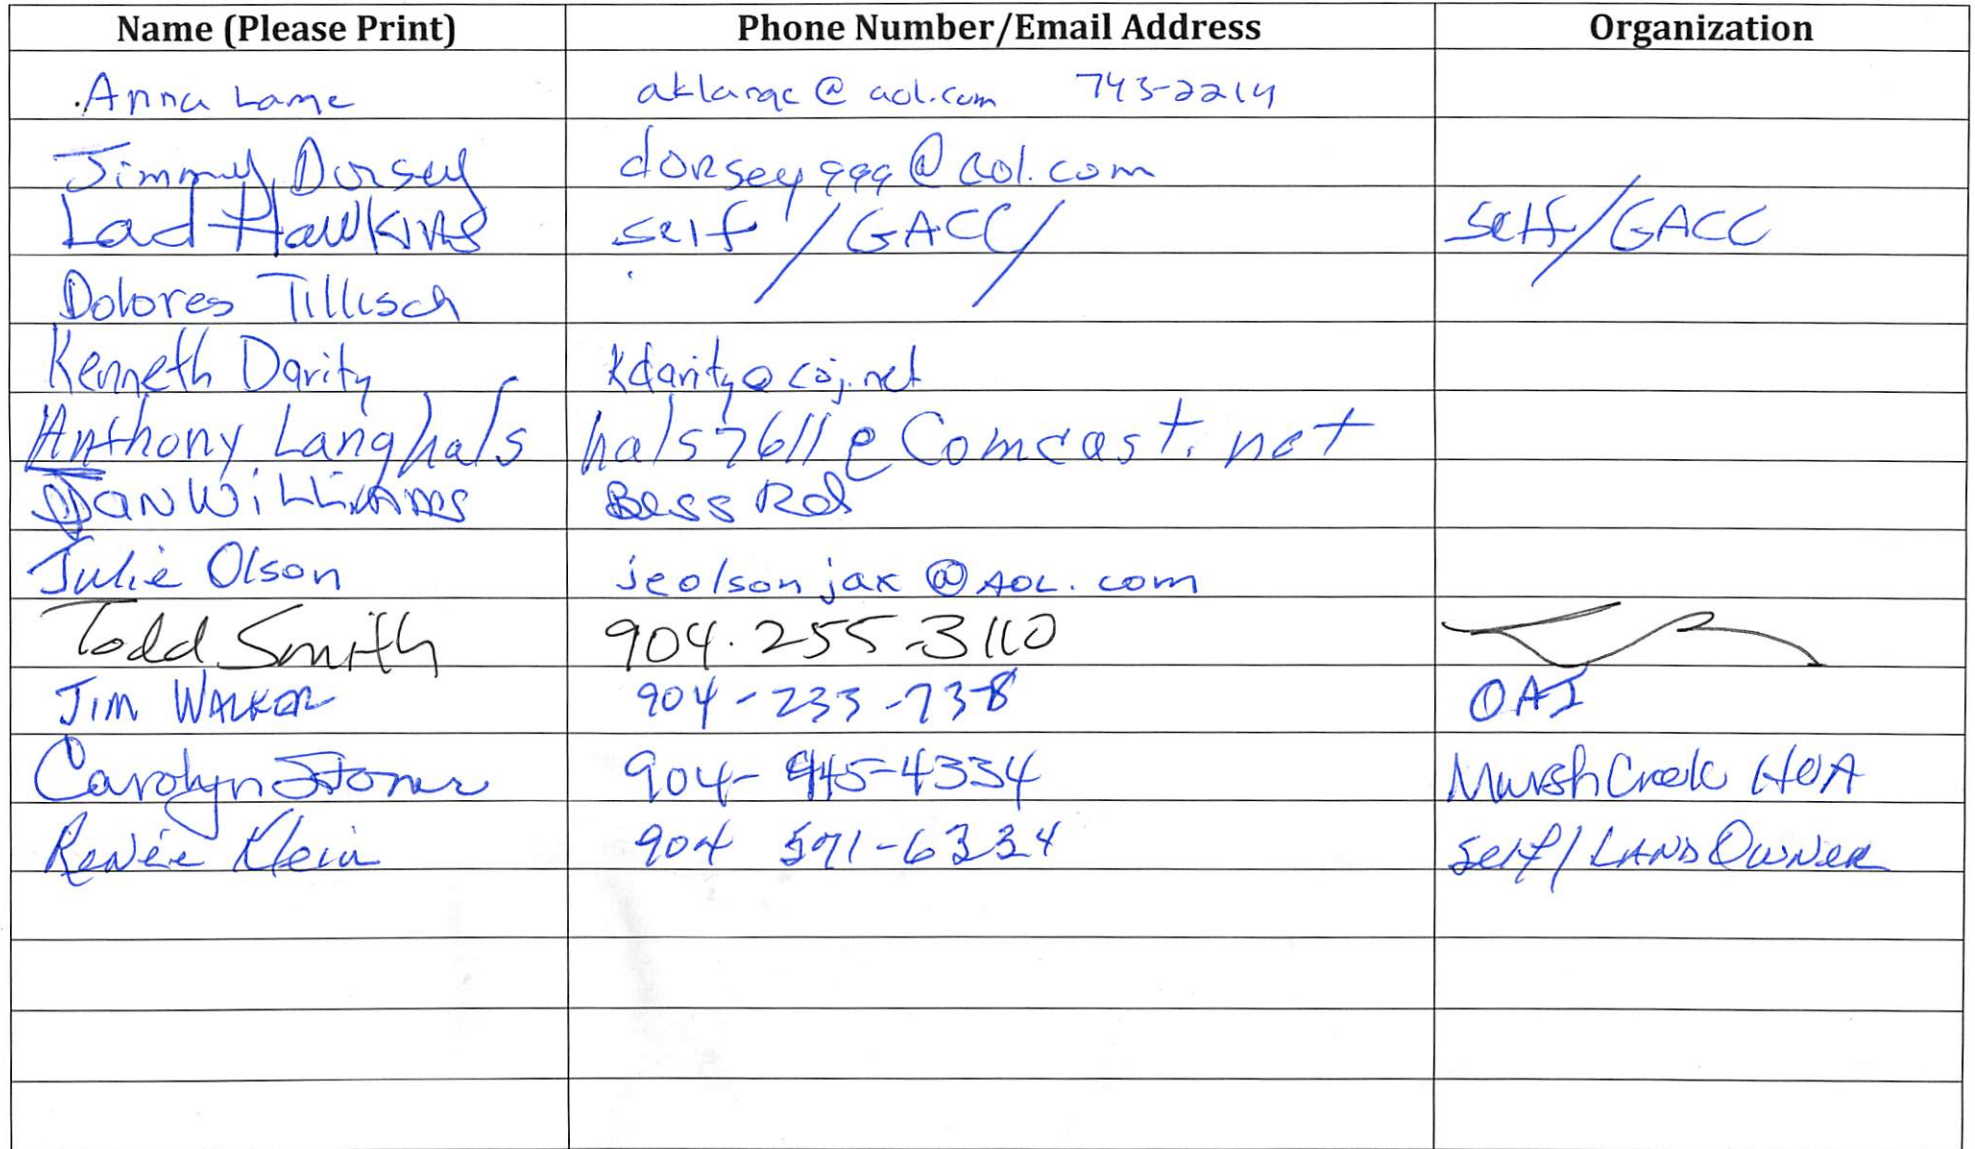 Name (Please Print) Phone Number/Email Address Organization
Anna Lange aklange@aol.com 743-2214
Jimmy Dorsey dorsey999@aol.com
Lad Hawkins self /GACC/ self/GACC
Dolores Tillisch
Kenneth Darity kdarity@coj.net
Anthony Langhals hals7611@Comcast.net
Dan Williams Bess Rd
Julie Olson jeolsonjax@AOL.com
Todd Smith 904.255-3110
Jim Walker 904-233-738 OAI
Carolyn Stoner 904-945-4334 Marsh Creek HOA
Renée Klein 904 571-6334 Self/LAND OWNER